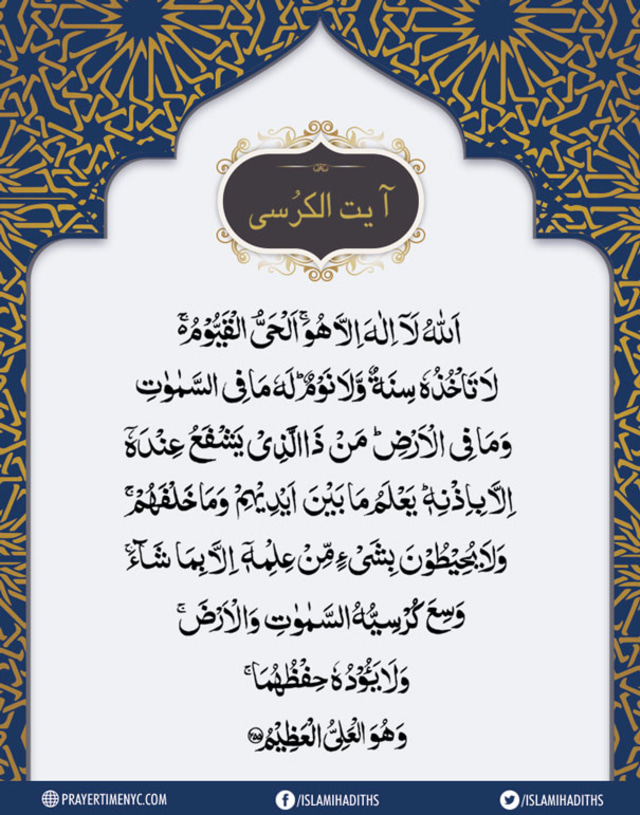 آیت الکرُسی
اَللّٰهُ لَآ اِلٰهَ اِلَّا هُوَۚ اَلْحَیُّ الْقَیُّوْمُ ۬ۚ
لَا تَاْخُذُهٗ سِنَةٌ وَّلَا نَوْمٌؕ لَهٗ مَا فِی السَّمٰوٰتِ
وَمَا فِی الْاَرْضِؕ مَنْ ذَا الَّذِیْ یَشْفَعُ عِنْدَهٗۤ
اِلَّا بِاِذْنِهٖؕ یَعْلَمُ مَا بَیْنَ اَیْدِیْهِمْ وَمَا خَلْفَهُمْۚ
وَلَا یُحِیْطُوْنَ بِشَیْءٍ مِّنْ عِلْمِهٖۤ اِلَّا بِمَا شَآءَۚ
وَسِعَ كُرْسِیُّهُ السَّمٰوٰتِ وَالْاَرْضَۚ
وَلَا یَـُٔوْدُهٗ حِفْظُهُمَاۚ
وَهُوَ الْعَلِیُّ الْعَظِیْمُ ۝۲۵۵
PRAYERTIMENYC.COM
/ISLAMIHADITHS
/ISLAMIHADITHS